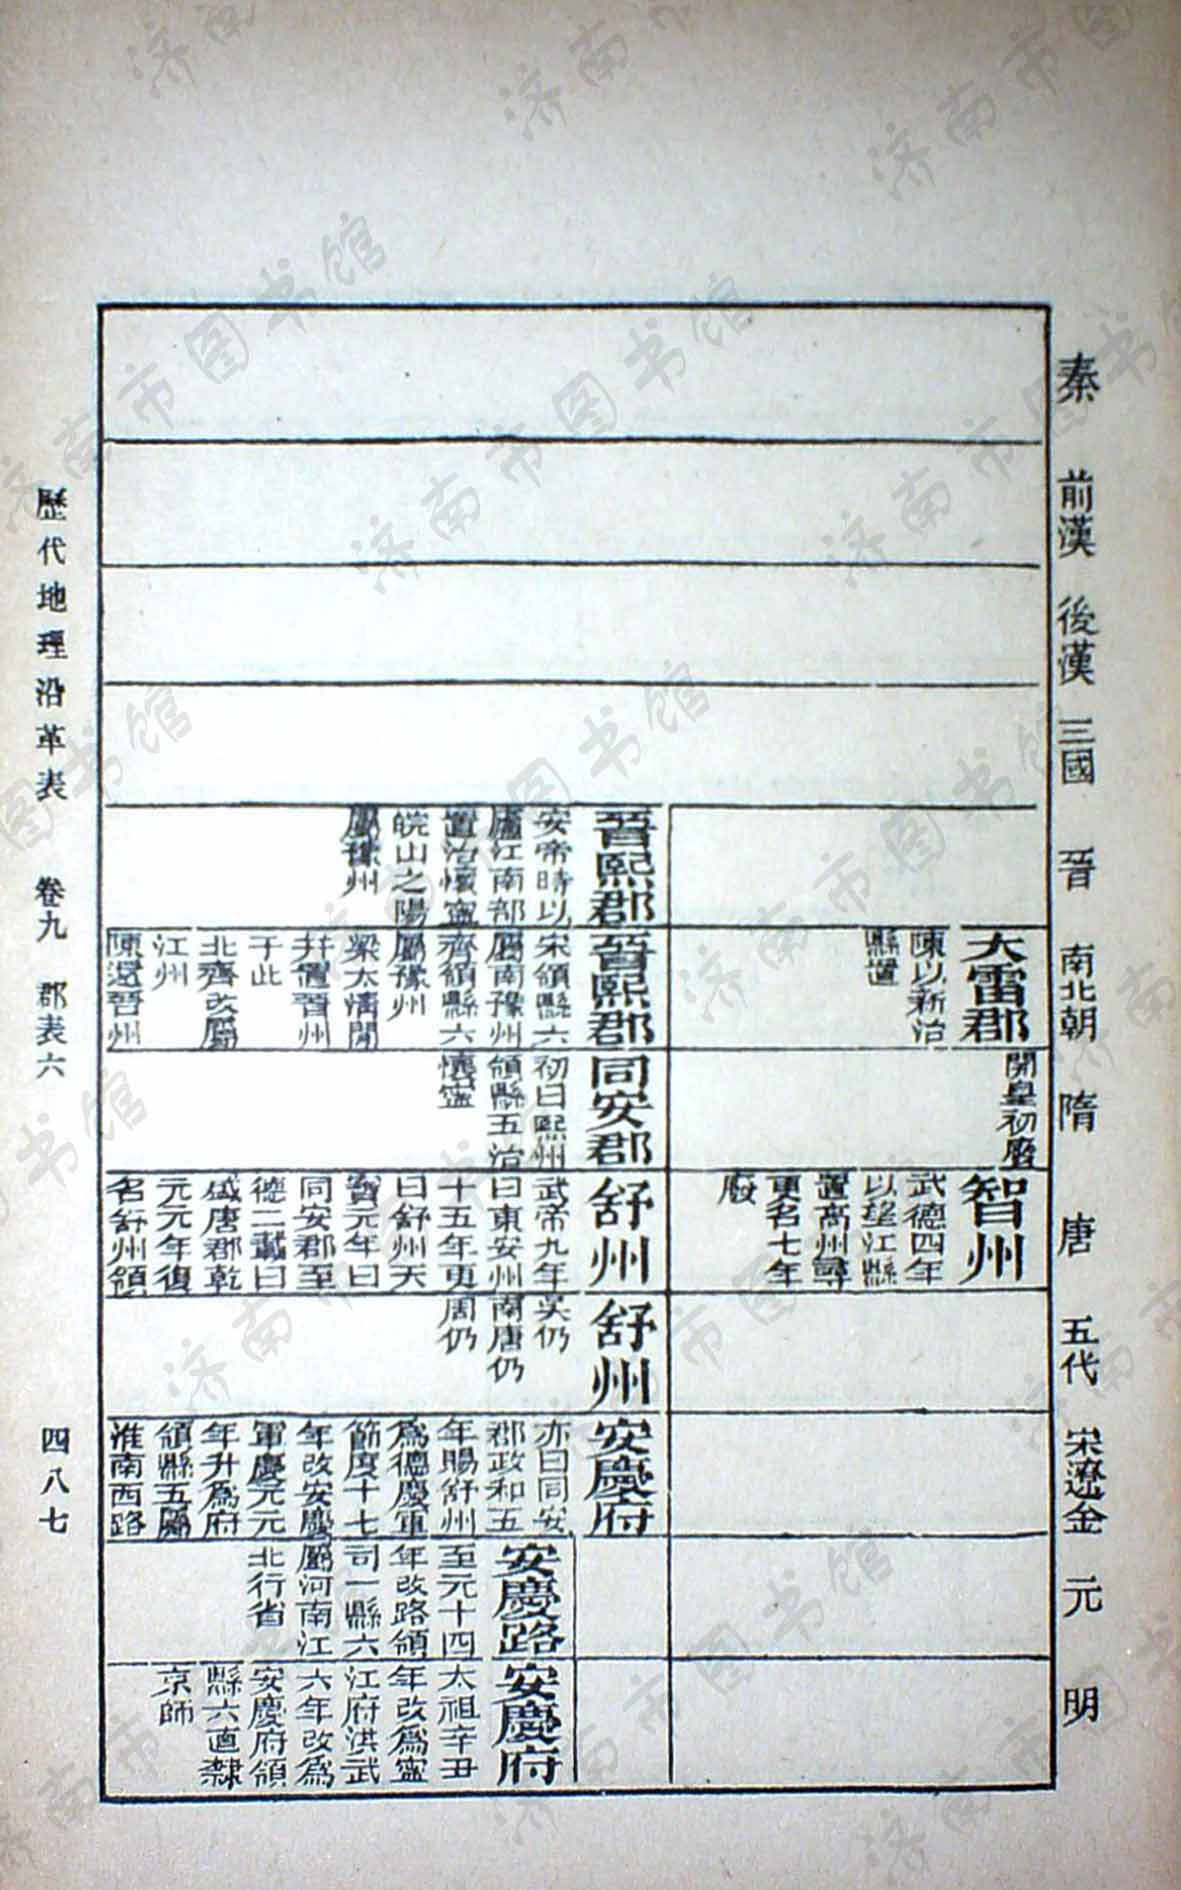 秦
前漢
後漢
三國
晉
南北朝
隋
唐
五代
宋遼金
元
明
大雷郡
陳以新治
縣置
開皇初廢
智州
武德四年
以望江縣
置高州尋
更名七年
廢
晉熙郡
安帝時以
廬江南部
置治懷寧
皖山之陽
屬豫州
晉熙郡
宋領縣六
屬南豫州
齊領縣六
屬豫州
梁太清閒
幷置晉州
于此
北齊改屬
江州
陳還晉州
同安郡
初曰熙州
領縣五治
懷寧
舒州
武帝九年
曰東安州
十五年更
曰舒州天
寶元年曰
同安郡至
德二載曰
盛唐郡乾
元元年復
名舒州領
舒州
吳仍
南唐仍
周仍
安慶府
亦曰同安
郡政和五
年賜舒州
爲德慶軍
節度十七
年改安慶
軍慶元元
年升爲府
領縣五屬
淮南西路
安慶路
至元十四
年改路領
司一縣六
屬河南江
北行省
安慶府
太祖辛丑
年改爲寧
江府洪武
六年改爲
安慶府領
縣六直隸
京師
歷代地理沿革表 卷九 郡表六
四八七
济南市图书馆